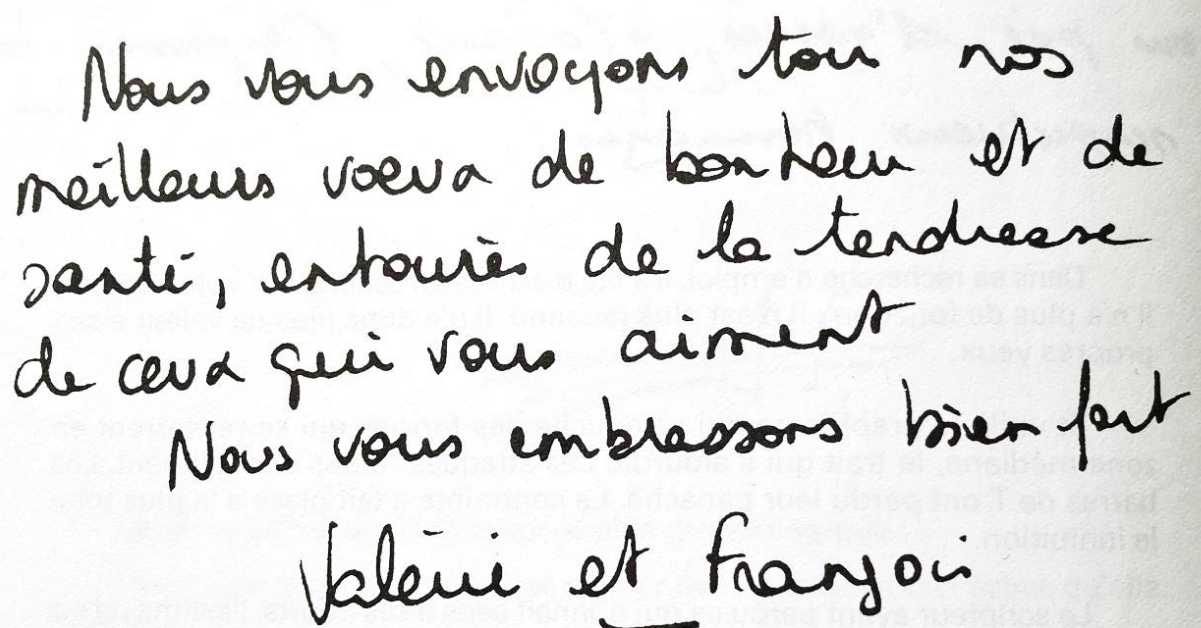 Nous vous envoyons tous nos
meilleurs voeux de bonheur et de
santé, entourés de la tendresse
de ceux qui vous aiment
Nous vous embrassons bien fort
Valérie et François